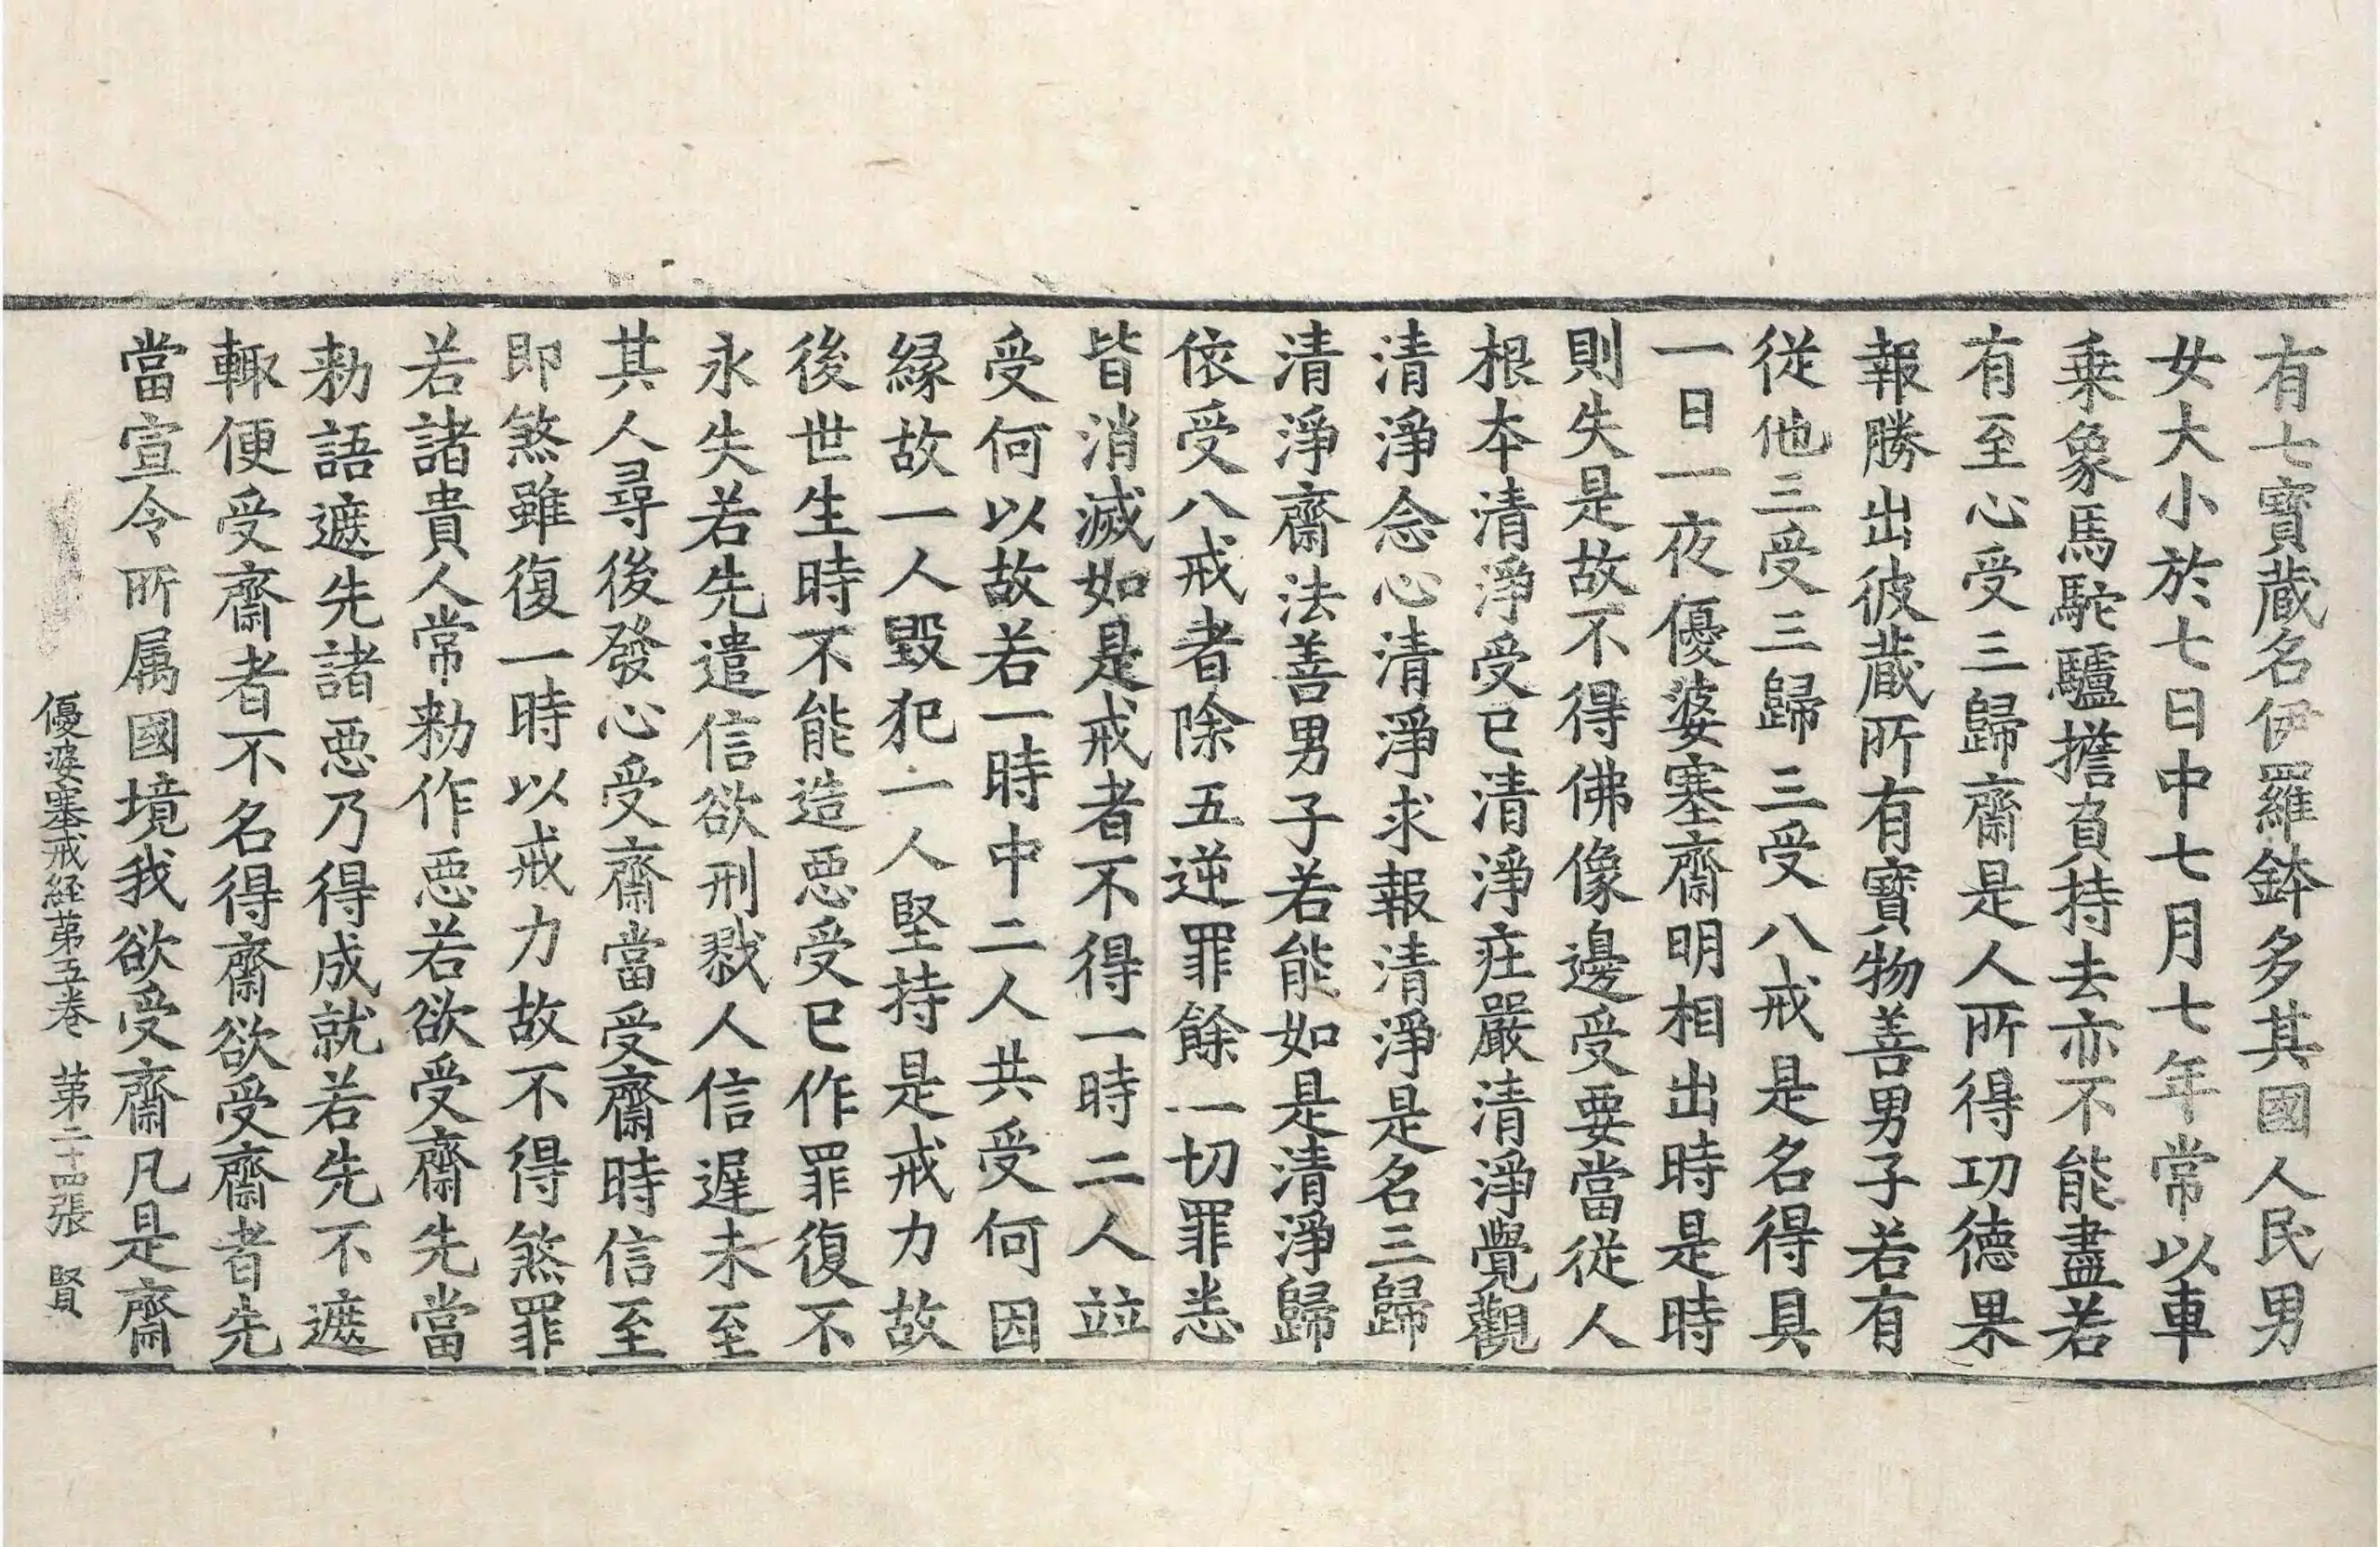 有七寶蔵名伊羅鉢多其國人民男
女大小於七日中七月七年常以車
乗象馬駝驢擔負持去亦不能盡若
有至心受三歸齋是人所得功德果
報勝出彼蔵所有寳物善男子若有
従他三受三歸三受八戒是名得具
一日一夜優婆塞齋明相出時是時
則失是故不得佛像邊受要當従人
根本清淨受已清淨庄嚴清淨覺觀
清淨念心清淨求報清淨是名三歸
清淨齋法善男子若能如是清淨歸
依受八戒者除五逆罪餘一切罪悉
皆消滅如是戒者不得一時二人竝
受何以故若一時中二人共受何因
縁故一人毀犯一人堅持是戒力故
後世生時不能造惡受已作罪復不
永失若先遣信欲刑戮人信遲未至
其人尋後發心受齋當受齋時信至
即煞雖復一時以戒力故不得煞罪
若諸貴人常勑作惡若欲受齋先當
勑語遮先諸惡乃得成就若先不遮
輙便受齋者不名得齋欲受齋者先
當宣令所属國境我欲受齋凡是齋
優婆塞戒経苐五巻 苐二十四張 賢